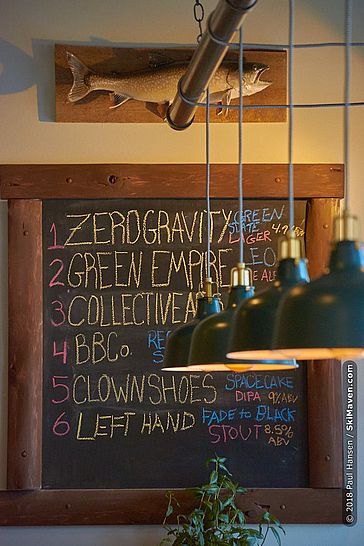 1 ZEROGRAVITY GREEN STATE LAGER 4.9%
2 GREEN EMPIRE
3 COLLECTIVE
4 BBCo.
5 CLOWNSHOES SPACECAKE DIPA 9% ABV
6 LEFT HAND FADE to BLACK STOUT 8.5% ABV
© 2018 Paul Hansen / SkiMaven.com